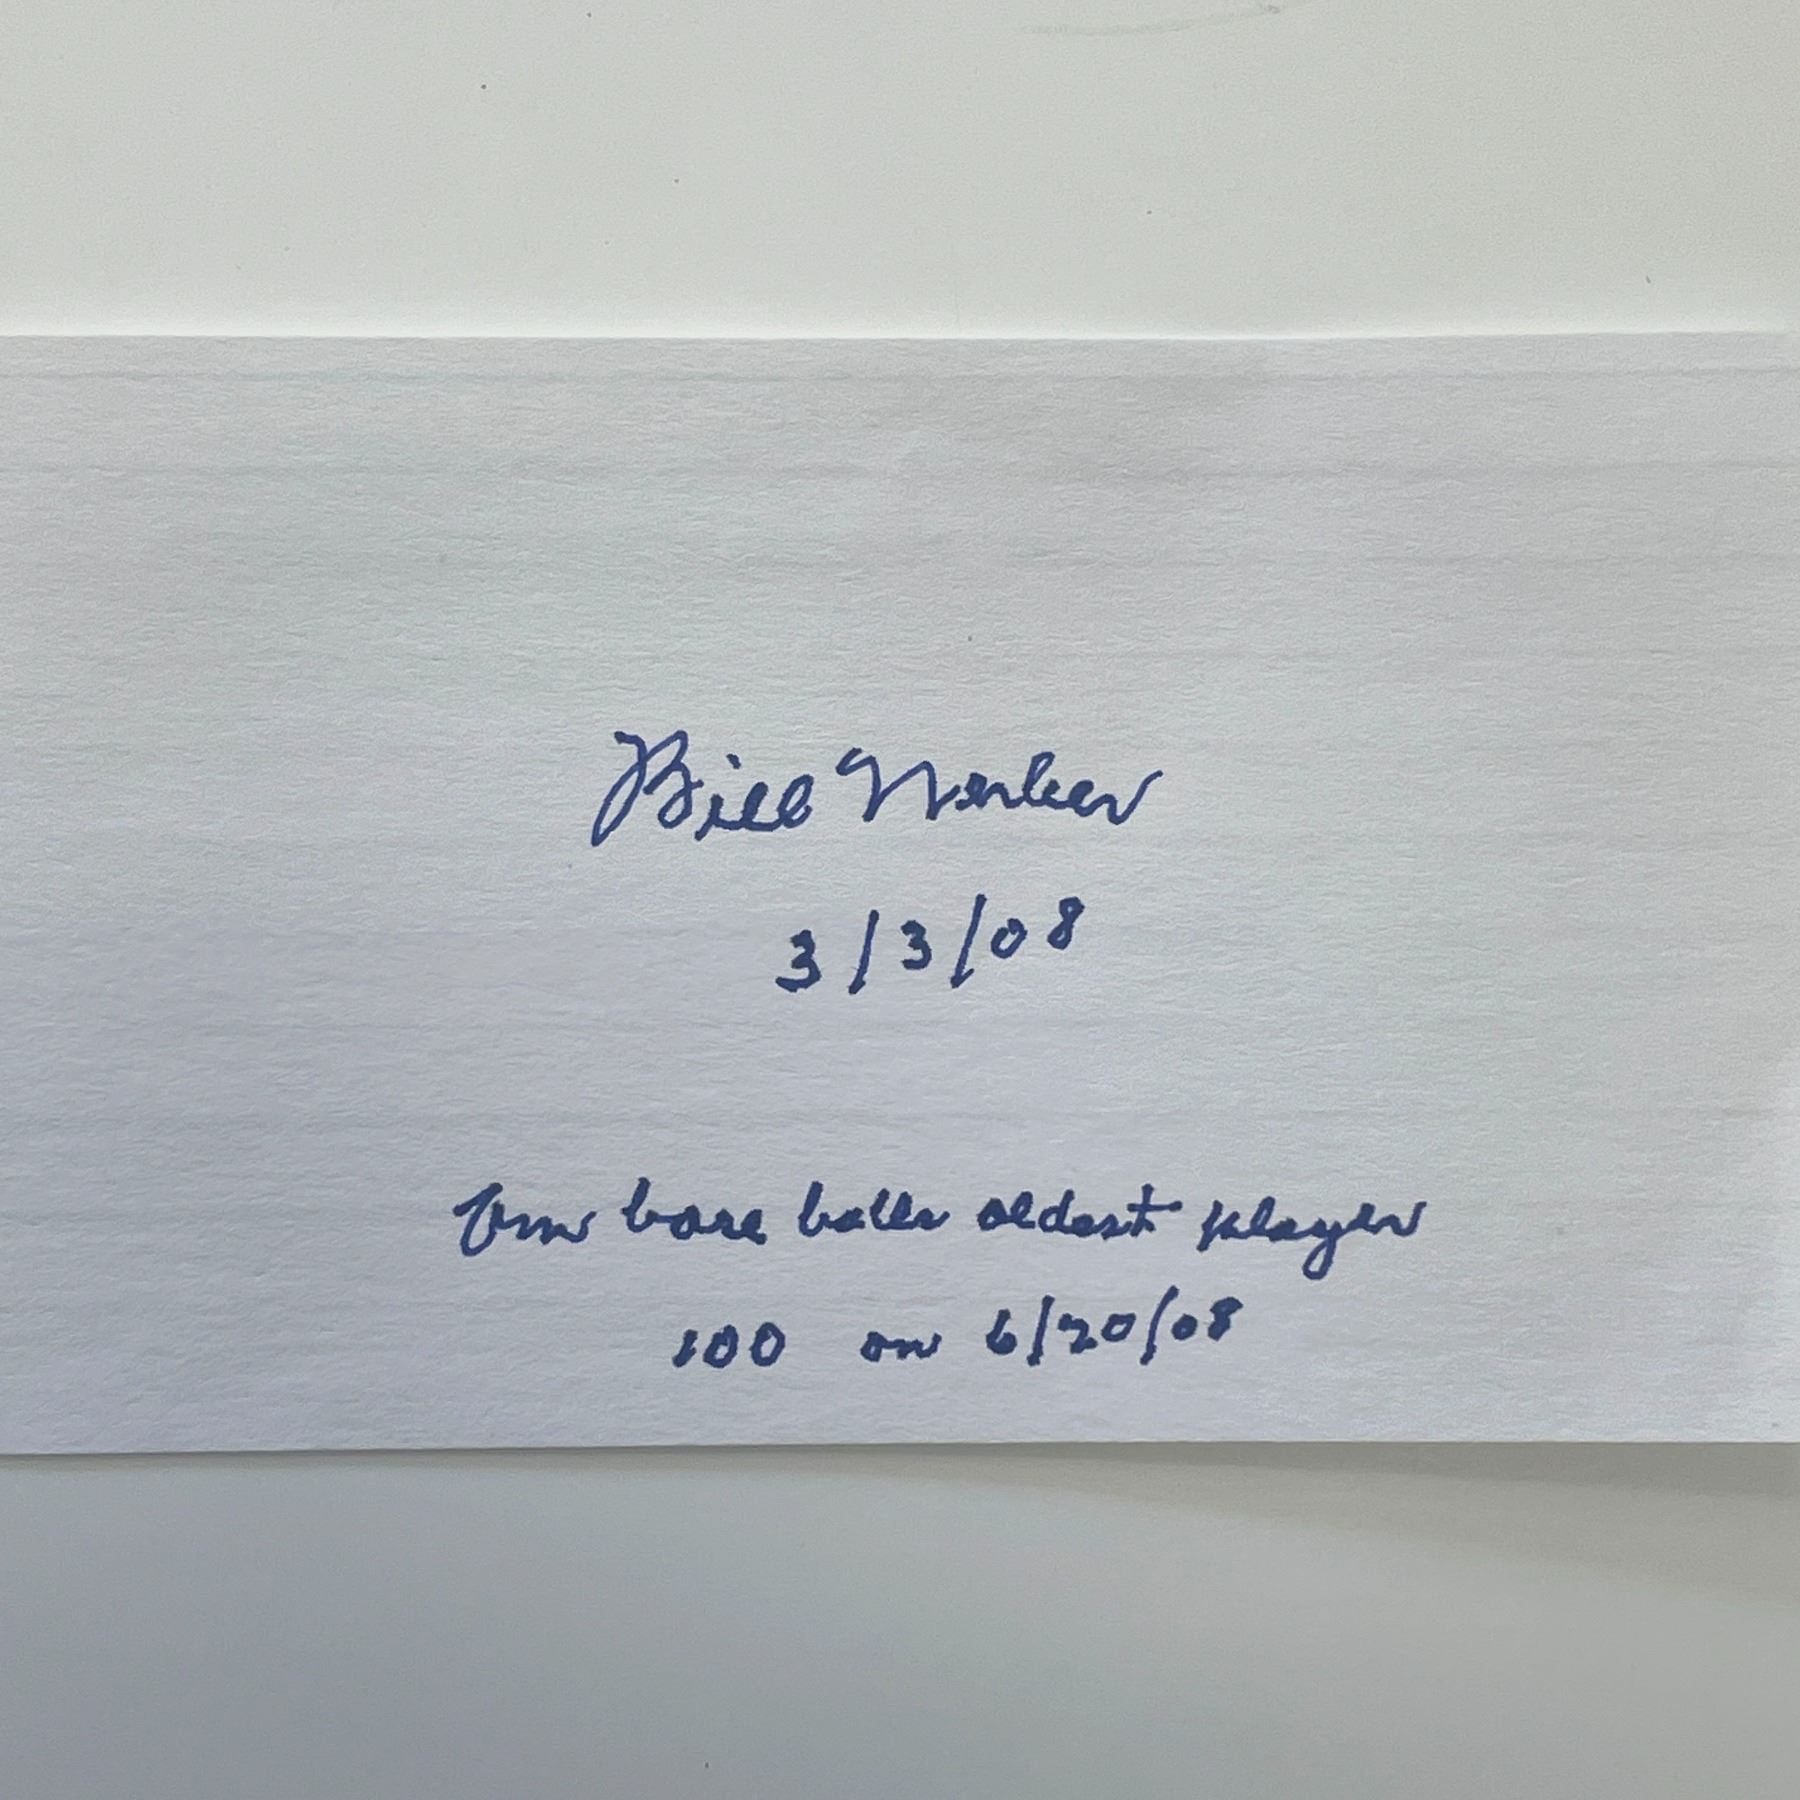 Bill Werber
3/3/08
Am base balls oldest player
100 on 6/20/08